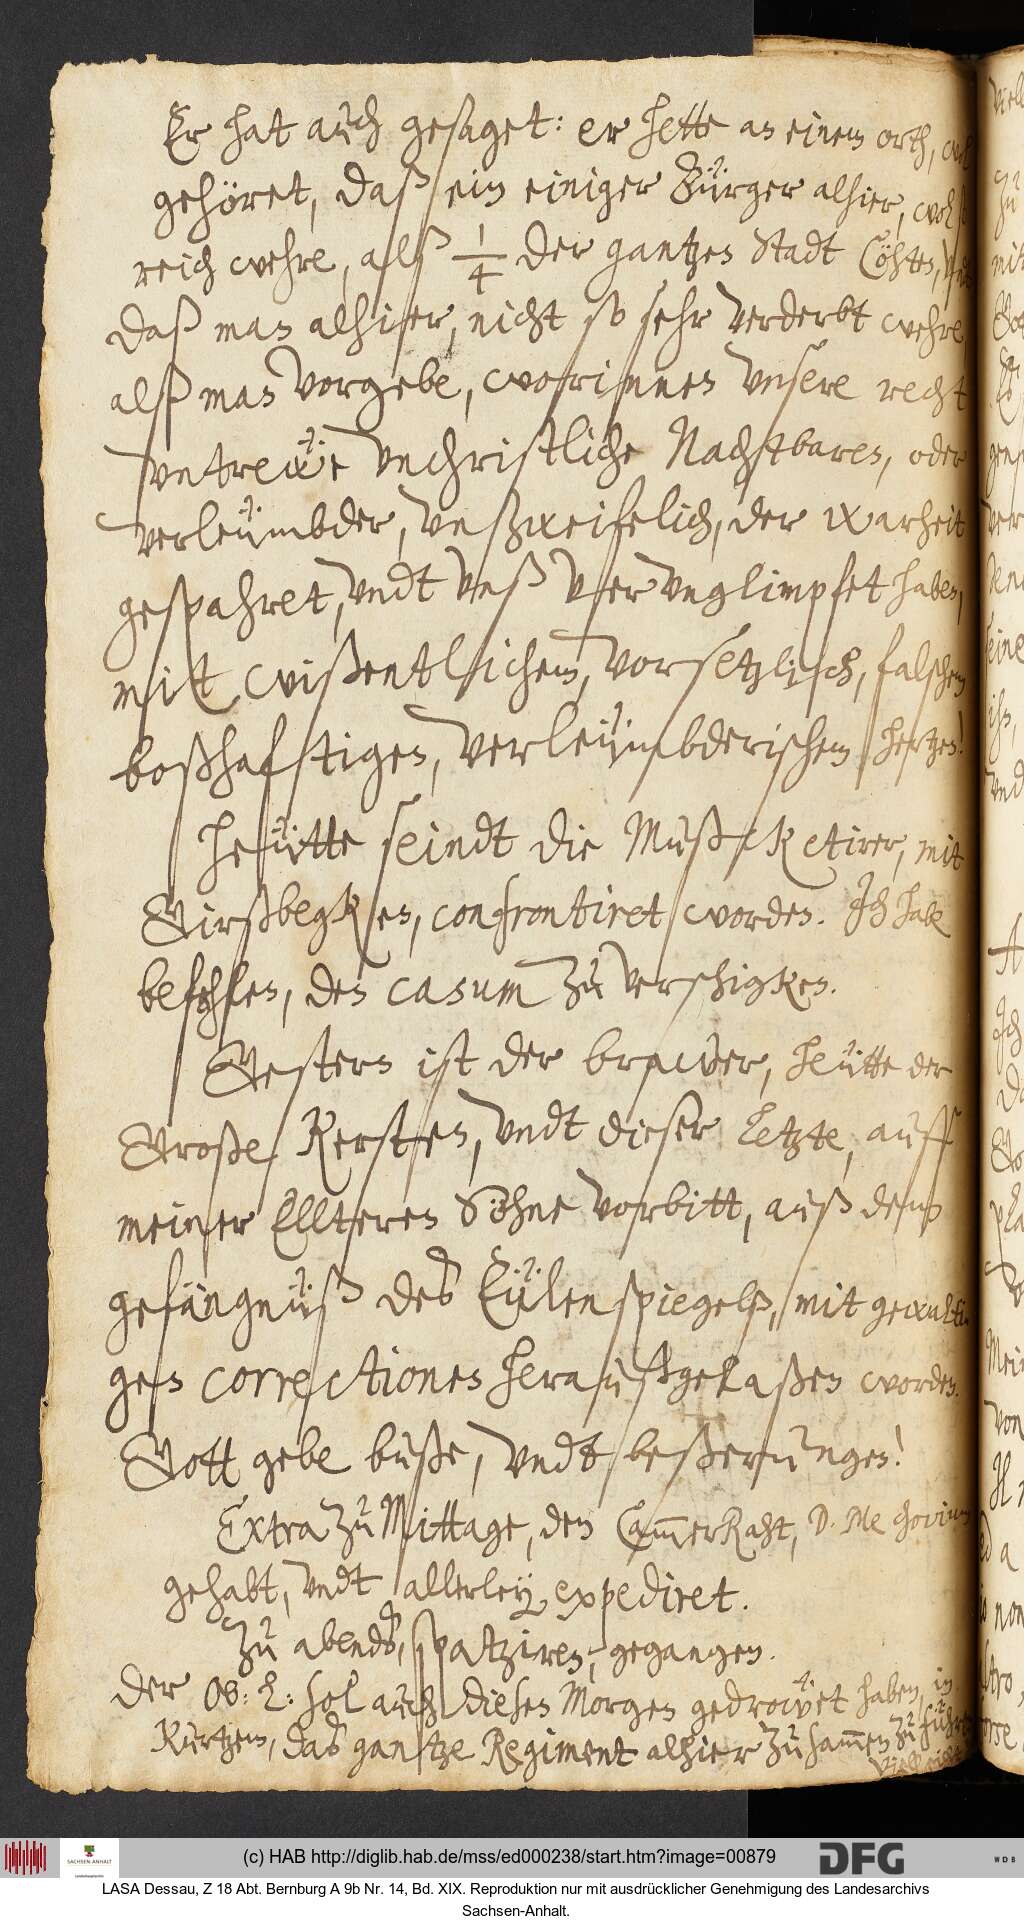 Er hat auch gesaget: er hette an einem orth,
gehöret, daß ein einiger Bürger alhier,
reich wehre, alß 1/4 der gantzen Stadt Cöhten,
daß man alhier, nicht so sehr verderbt wehre,
alß man vorgebe, worinnen unsere recht
untrewe unchristliche Nachstbaren, oder
verleümbder, unßweifelich, der warheit
gespahret, undt unß verunglimpfet haben,
mit wißentlichem, vorsetzlich, falschem
boßhafftigen, verleümbderischem hertzen!
Heütte seindt die Mußketirer, mit
Girßbegken, confrontiret worden. Ich habe
befohlen, den casum zu verschigken.
Gestern ist der brawer, heütte der
Große Kersten, undt dieser letzte, auff
meiner Ellteren Söhne vorbitt, auß dem
gefängnüß des Eülenspiegelß, mit gewalti
gen correctionen heraußgelaßen worden.
Gott gebe buße, undt beßerungen!
Extra zu Mittage, den CammerRaht, D. Mechovium
gehabt, undt allerley expediret.
Zu abends, spatziren, gegangen.
der Ob: L: sol auch diesen Morgen gedrowet haben, in
Kurtzem, das gantze Regiment alhier zusammen zu führen
(c) HAB http://diglib.hab.de/mss/ed000238/start.htm?image=00879
SACHSEN-ANHALT
DFG
WDB
LASA Dessau, Z 18 Abt. Bernburg A 9b Nr. 14, Bd. XIX. Reproduktion nur mit ausdrücklicher Genehmigung des Landesarchivs
Sachsen-Anhalt.